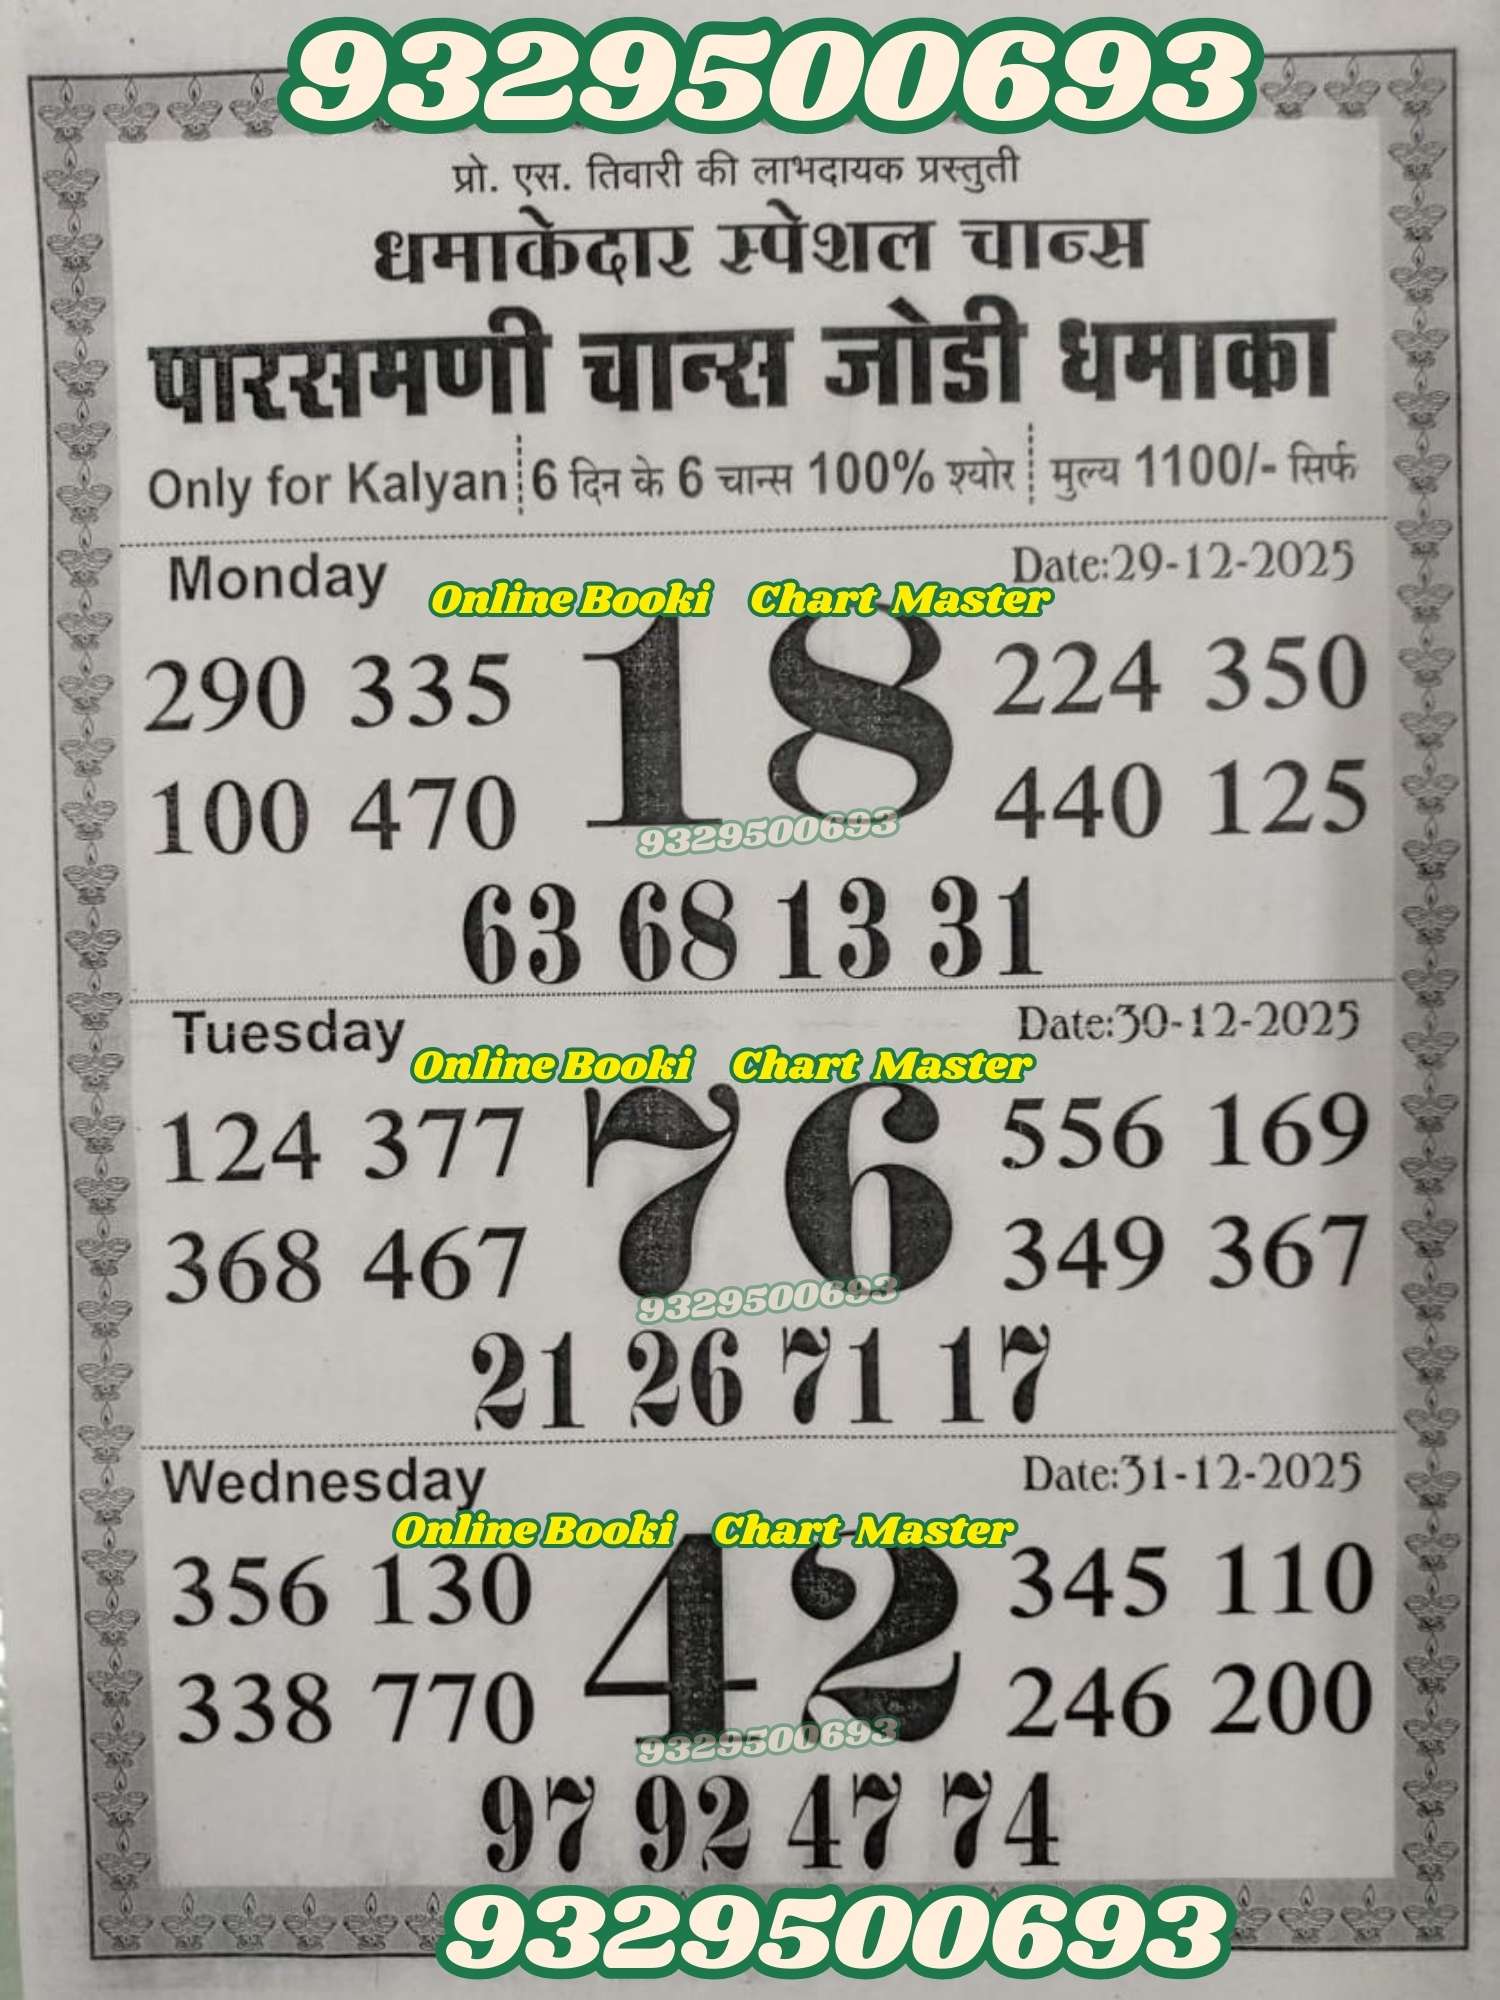 9329500693
प्रो. एस. तिवारी की लाभदायक प्रस्तुती
धमाकेदार स्पेशल चान्स
पारसमणी चान्स जोडी धमाका
Only for Kalyan 6 दिन के 6 चान्स 100% श्योर मुल्य 1100/- सिर्फ
Monday Date:29-12-2025
Online Booki Chart Master
290 335 18 224 350
100 470 440 125
9329500693
63 68 13 31
Tuesday Date:30-12-2025
Online Booki Chart Master
124 377 76 556 169
368 467 349 367
9329500693
21 26 71 17
Wednesday Date:31-12-2025
Online Booki Chart Master
356 130 42 345 110
338 770 246 200
9329500693
97 92 47 74
9329500693